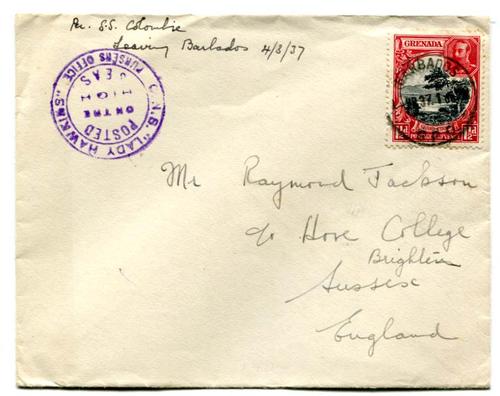 Per. S.S. Colombie
Leaving Barbados 4/8/37
C.N.S. "LADY HAWKINS"
POSTED
ON THE
HIGH
SEAS
PURSERS OFFICE
GRENADA
BARBADOS
Mr Raymond Jackson
c/o Hove College
Brighton
Sussex
England